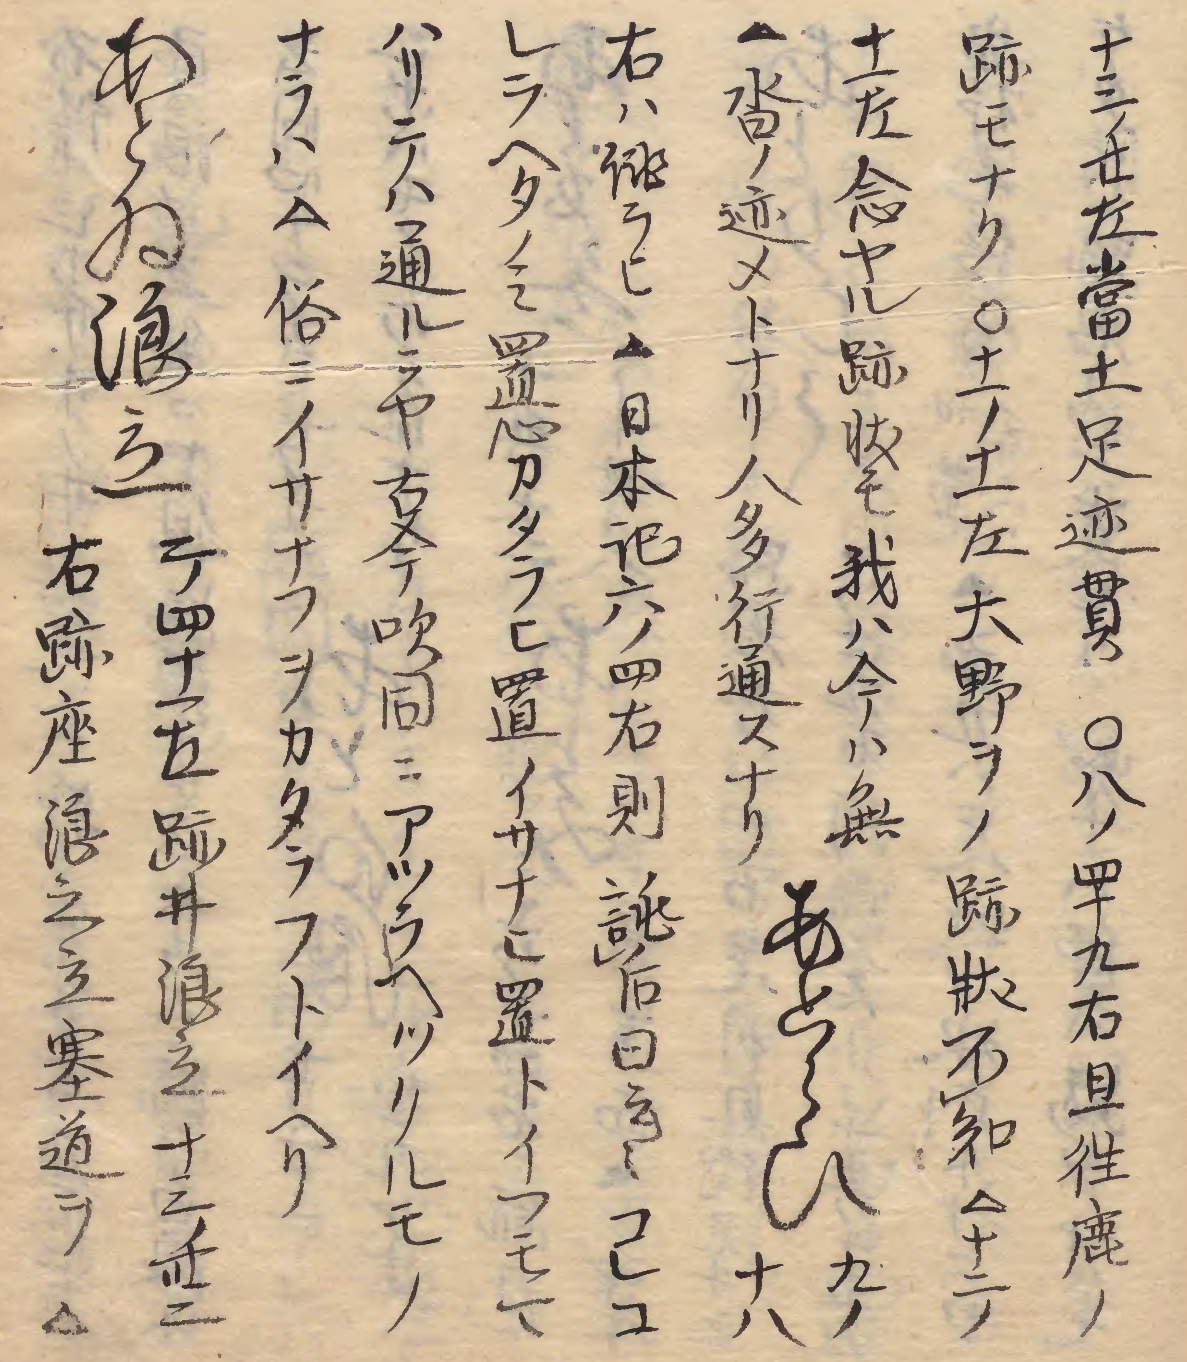 十三ノ廿左當土足迹貫。〇八ノ四十九右且往鹿ノ
跡モナク〇十一ノ十一左大野ヲノ跡狀不知△十二ノ
十一左念ヤル跡狀モ我ハ今ハ無
▲沓ノ迹メトナリ人多行通スナリ
あとらひ
九ノ
十八
右ハ誂ラヒ▲日本記六ノ四右則誂后曰云々コレコ
レラヘタノミ置カタラヒ置イサナヒ置トイフモ
ハリテハ通ルニヤ古今吹同ニアツラヘツクルモノ
ナラハ△俗ニイサナフヲカタラフトイヘリ
あとゐ浪立
四十一左跡井浪立十三ノ卅二
右跡座浪之立塞道ヲ△